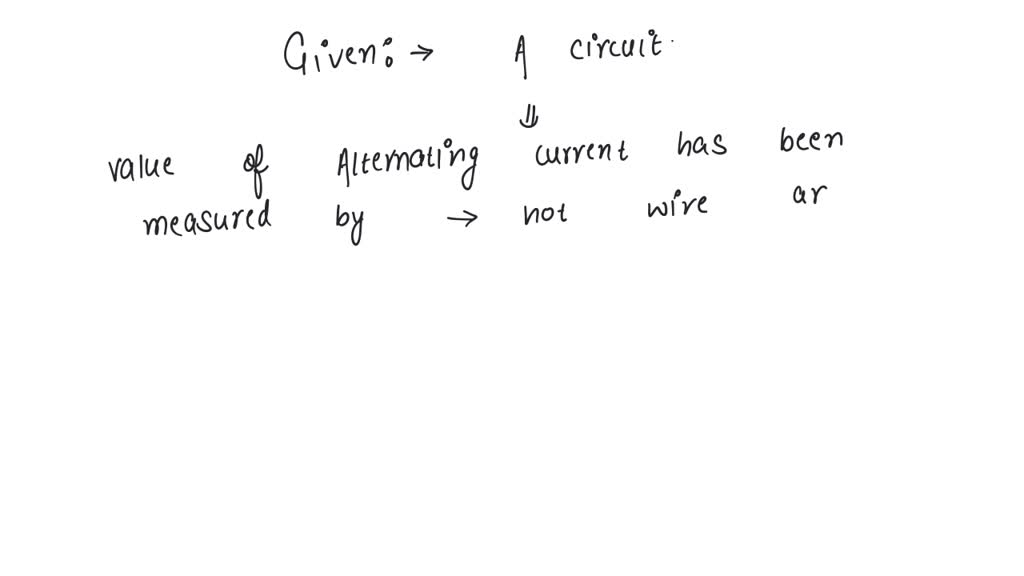 Given: → A circuit
⇓
value of Alternating current has been
measured by → hot wire ar